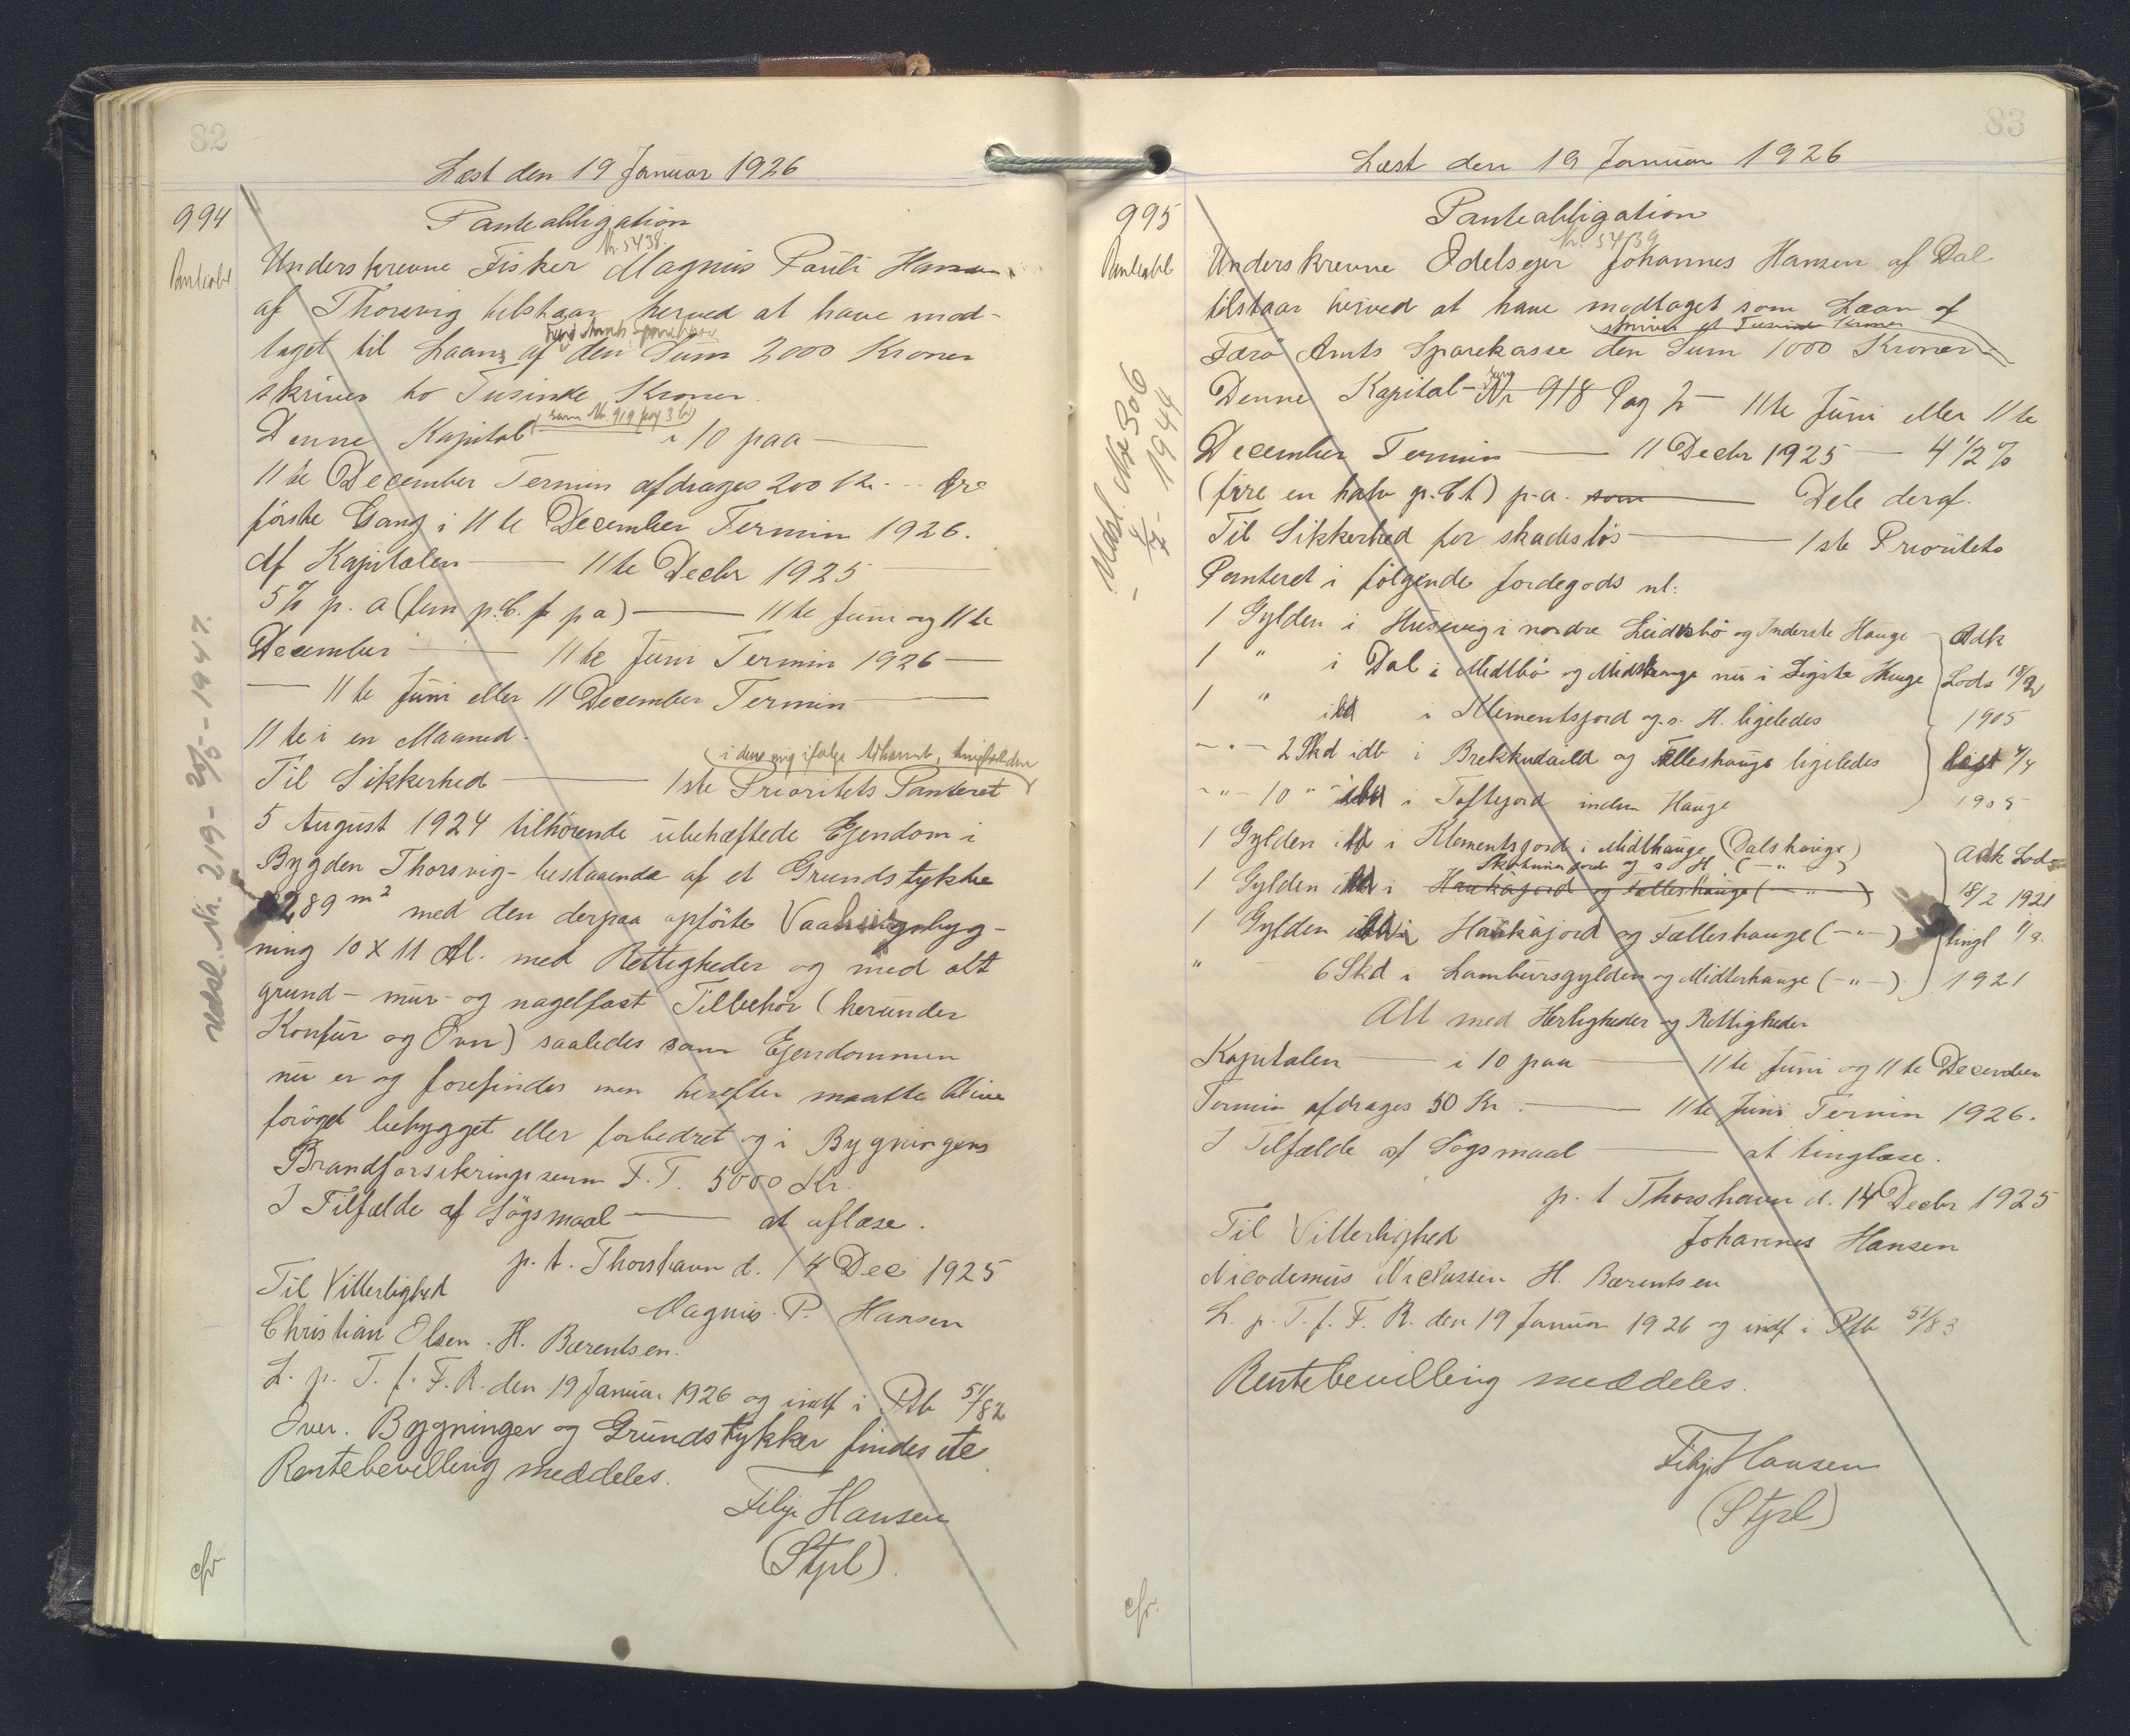 82
Læst den 19 Januar 1926
994
Panteobligation
Nr. 5438.
Panteobl
Underskrevne Fisker Magnus Pauli Hansen
af Thorsvig tilstaar herved at have mod-
Færø Amts Sparekasse
taget til Laans af den Sum 2000 Kroner
skriver to Tusinde Kroner.
(som Nr. 919 pag 3 b)
Denne Kapital i 10 paa —
11te December Termin afdrages 200 Kr.
første Gang i 11te December Termin 1926.
Af Kapitalen — 11te Decbr 1925 —
5% p. a (fem p.C. p a) — 11te Juni og 11te
December — 11te Juni Termin 1926 —
— 11te Juni eller 11 December Termin —
11te i en Maaned.
(i den mig ifølge Adkomst, tinglæst den
Til Sikkerhed — 1ste Prioritets Panteret
5 August 1924 tilhørende ubehæftede Ejendom i
Bygden Thorsvig - bestaaende af et Grundstykke
289 m² med den derpaa opførte Vaaningsbyg-
ning 10 X 11 Al. med Rettigheder og med alt
grund- mur- og nagelfast Tilbehør (herunder
Komfur og Ovn) saaledes som Ejendommen
nu er og forefindes men herefter maatte blive
forøget bebygget eller forbedret og i Bygningens
Brandforsikringssum F.T. 5000 Kr.
I Tilfælde af Søgsmaal — at aflæse.
p. t. Thorshavn d. 14 Dec 1925
Til Vitterlighed
Magnus P. Hansen
Christian Olsen. H. Bærentsen.
L. p. T. f. F. R. den 19 Januar 1926 og indf i Ptb 51/82
Over. Bygninger og Grundstykker findes
Rentebevilling meddeles.
Filip Hansen
(Stpl).
cfr.
Udsl. Nr. 219 - 20/5 - 1947.
83
Læst den 19 Januar 1926
995
Panteobligation
Nr. 5439
Panteobl
Underskrevne Odelsejer Johannes Hansen af Dal
tilstaar herved at have modtaget som Laan af
skriver et Tusinde Kroner
Færø Amts Sparekasse den Sum 1000 Kroner
Denne Kapital - Nr 918 Pag 2 — 11te Juni eller 11te
December Termin — 11 Decbr 1925 — 4 1/2 %
(fire en halv p.Ct) p.a. som — Dele deraf.
Til Sikkerhed for skadesløs — 1ste Prioritets
Panteret i følgende Jordegods nl:
1 Gylden i Husevig i nordre Leidebø og Inderste Hauge
1 " i Dal i Midtbø og Midthauge nu i Sigste Hauge
1 " i Klementsjord og s. H. ligeledes
- " - 2 Skd idb i Brekkudeild og Fælleshauge ligeledes
- " - 10 " i Toftejord inden Hauge
Adk
Lods 18/2
1905
4/4
1905
1 Gylden i Klementsjord i Midthauge (Dalshauge)
og s H. (- " -)
1 Gylden i Haukajord og Fælleshauge (- " -)
1 Gylden i Haukajord og Fælleshauge (- " -)
" 6 Skd i Lambursgylden og Midterhauge (- " -)
Adk Lods
18/2 1921
tingl 1/3
1921
Alt med Herligheder og Rettigheder
Kapitalen — i 10 paa — 11te Juni og 11te December
Termin afdrages 50 Kr. — 11te Juni Termin 1926.
I Tilfælde af Søgsmaal — at tinglæse.
p. t Thorshavn d. 14 Decbr 1925
Til Vitterlighed
Johannes Hansen
Nicodemus Niclassen H. Bærentsen
L. p. T. f. F. R. den 19 Januar 1926 og indf i Ptb 51/83
Rentebevilling meddeles.
Filip Hansen
(Stpl)
cfr.
Udsl. Nr 306
- 4/7 - 1944